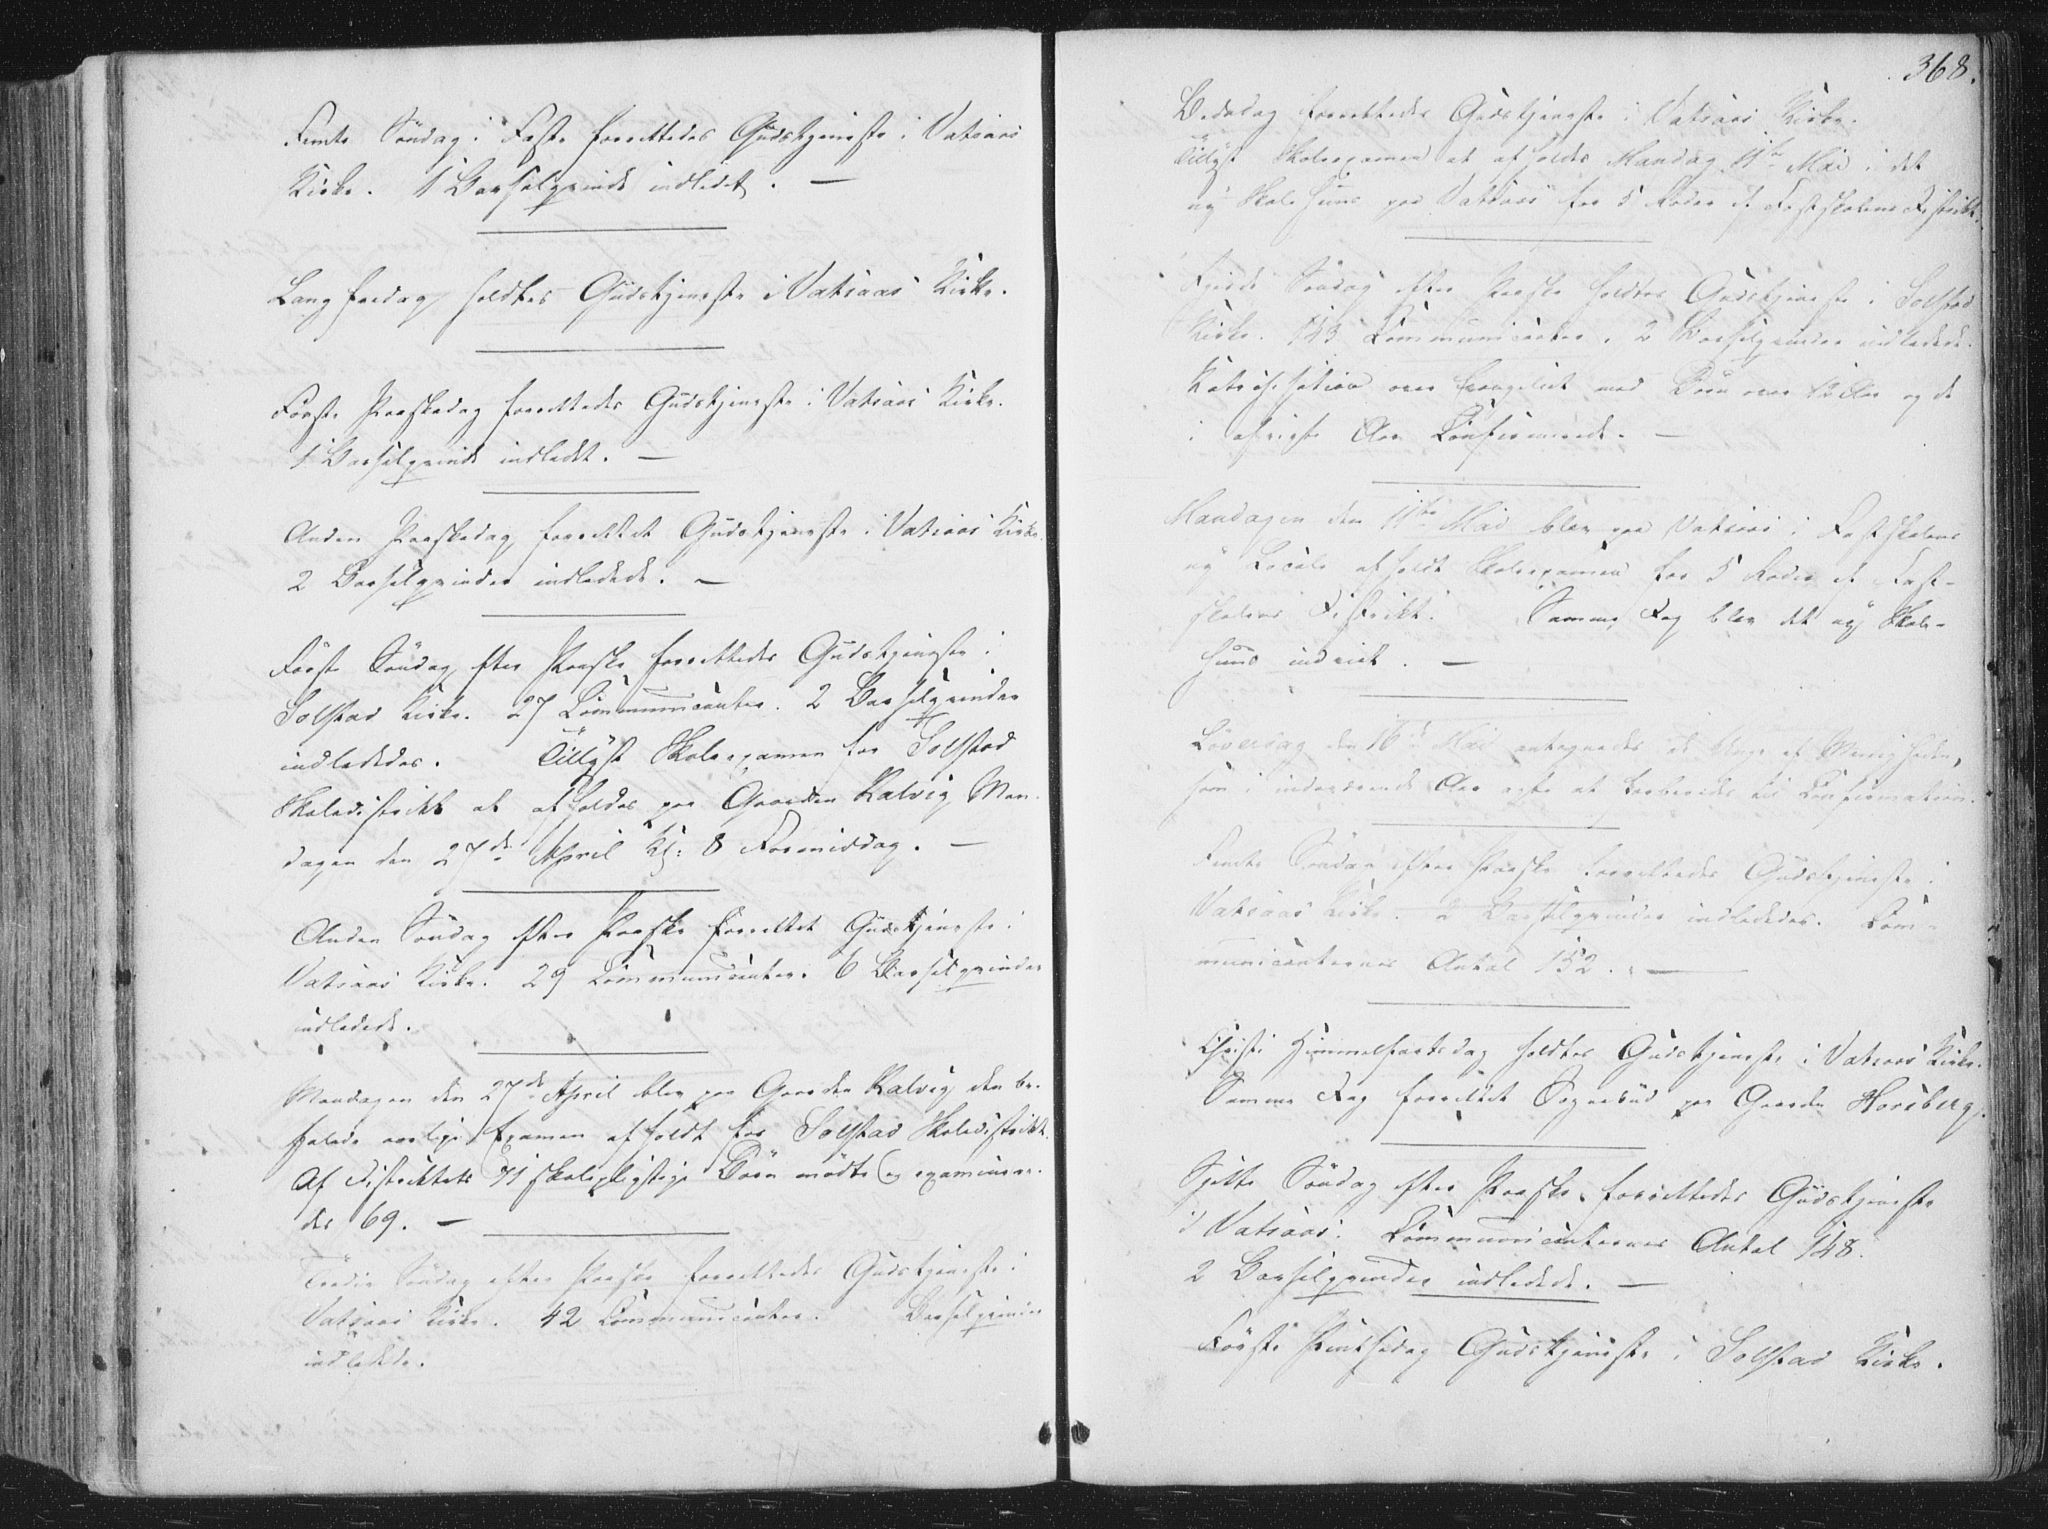 Femte Söndag i Faste forrettedes Gudstjeneste i Vatsaas
Kirke. 1 Barselqvinde indledet. —
Langfredag holdtes Gudstjeneste i Vatsaas Kirke.
Første Paaskedag forrettedes Gudstjeneste i Vatsaas Kirke.
1 Barselqvinde indledet. —
Anden Paaskedag forrettet Gudstjeneste i Vatsaas Kirke.
2 Barselqvinder indledede. —
Første Söndag efter Paaske forrettedes Gudstjeneste i
Solstad Kirke. 27 Communicanter. 2 Barselqvinder
indlededes. Tillyst Skoleexamen for Solstad
Skoledistrikt at afholdes paa Gaarden Kalvig Man-
dagen den 27de April Kl: 8 Formiddag. —
Anden Söndag efter Paaske forrettet Gudstjeneste i
Vatsaas Kirke. 29 Communicanter. 6 Barselqvinder
indledede.
Mandagen den 27de April blev paa Gaarden Kalvig den be-
falede aarlige Examen afholdt for Solstad Skoledistrikt.
Af Distriktets 71 skolepligtige Børn mødte og examinere-
des 69. —
Tredie Söndag efter Paaske forrettedes Gudstjeneste i
Vatsaas Kirke. 42 Communicanter. Barselqvinder
indledede.
368.
Bededag forrettedes Gudstjeneste i Vatsaas Kirke.
Tillyst Skoleexamen at afholdes Mandag 11te Mai i det
ny Skolehuus paa Vatsaas for 5 Roder af Fastskolens Distrikt.
Fjerde Söndag efter Paaske holdtes Gudstjeneste i Solstad
Kirke. 143 Communicanter. 2 Barselqvinder indledede.
Katechisation over Evangeliet med Børn over 12 Aar og de
i afvigte Aar Confirmerede. —
Mandagen den 11te Mai blev paa Vatsaas i Fastskolens
ny Locale afholdt Skoleexamen for 5 Roder af Fast-
skolens Distrikt. Samme Dag blev det ny Skole-
huus indviet. —
Löverdag den 16de Mai antegnedes de Unge af Menigheden,
som indeværende Aar agte at forberedes til Confirmation.
Femte Söndag efter Paaske forrettedes Gudstjeneste i
Vatsaas Kirke. 2 Barselqvinder indledededes. Com-
municanternes Antal 152. —
Christi Himmelfartsdag holdtes Gudstjeneste i Vatsaas Kirke.
Samme Dag forrettet Sognebud paa Gaarden Horsberg.
Sjette Söndag efter Paaske forrettedes Gudstjeneste
i Vatsaas. Communicanternes Antal 148.
2 Barselqvinder indledede. —
Første Pintsedag Gudstjeneste i Solstad Kirke.